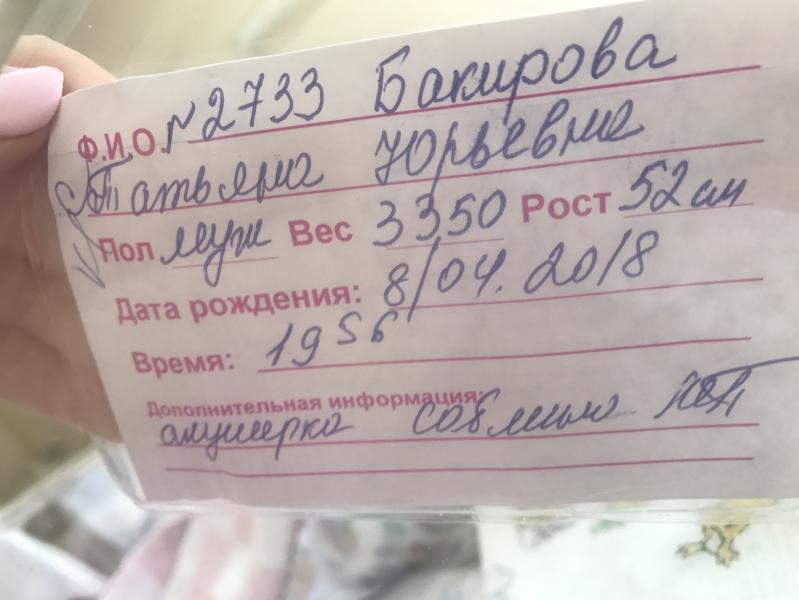 Ф.И.О. №2733 Бакирова
Татьяна Юрьевна
Пол муж Вес 3350 Рост 52 см
Дата рождения: 8/04.2018
Время: 19 56
Дополнительная информация:
акушерка